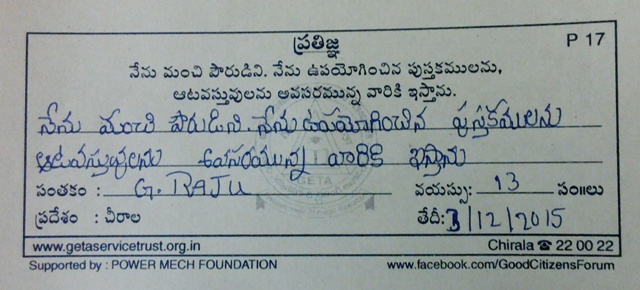 ప్రతిజ్ఞ
P 17
నేను మంచి పౌరుడిని. నేను ఉపయోగించిన పుస్తకములను,
ఆటవస్తువులను అవసరమున్న వారికి ఇస్తాను.
నేను మంచి పౌరుడిని. నేను ఉపయోగించిన పుస్తకములను
ఆటవస్తువులను అవసరమున్న వారికి ఇస్తాను
సంతకం : G. RAJU వయస్సు: 13 సం॥లు
ప్రదేశం : చీరాల తేదీ: 3/12/2015
www.getaservicetrust.org.in Chirala ☎ 22 00 22
Supported by : POWER MECH FOUNDATION www.facebook.com/GoodCitizensForum
GETA